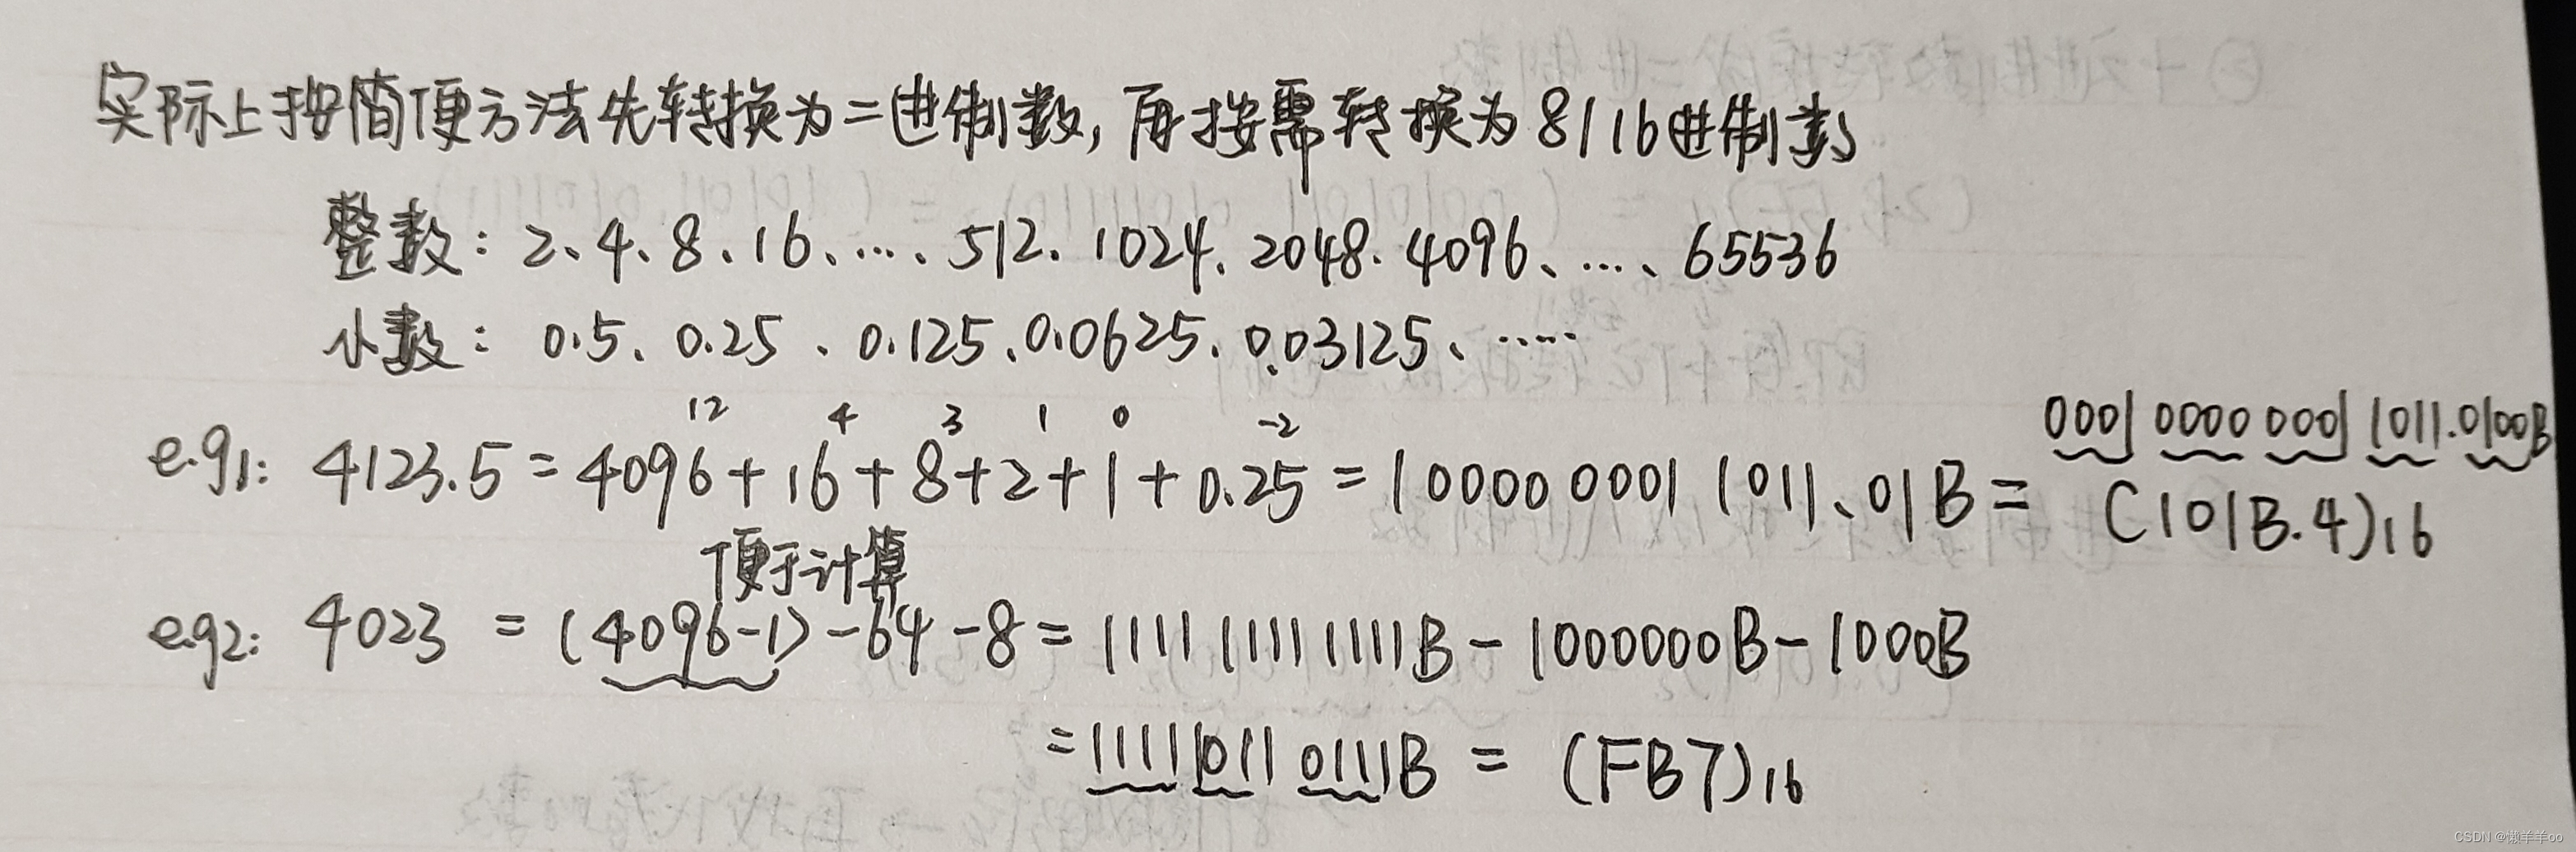 实际上按简便方法先转换为二进制数, 再按需转换为8/16进制数
整数: 2、4、8、16、…、512、1024、2048、4096、…、65536
小数: 0.5、0.25、0.125、0.0625、0.03125、……
12 4 3 1 0 -2
0001 0000 0001 1011.0100B
e.g1: 4123.5=4096+16+8+2+1+0.25=10000 0001 1011、01B=(101B.4)16
便于计算
e.g2: 4023 = (4096-1)-64-8=1111 1111 1111B-1000000B-1000B
=1111 1011 0111B = (FB7)16
CSDN @懒羊羊oo